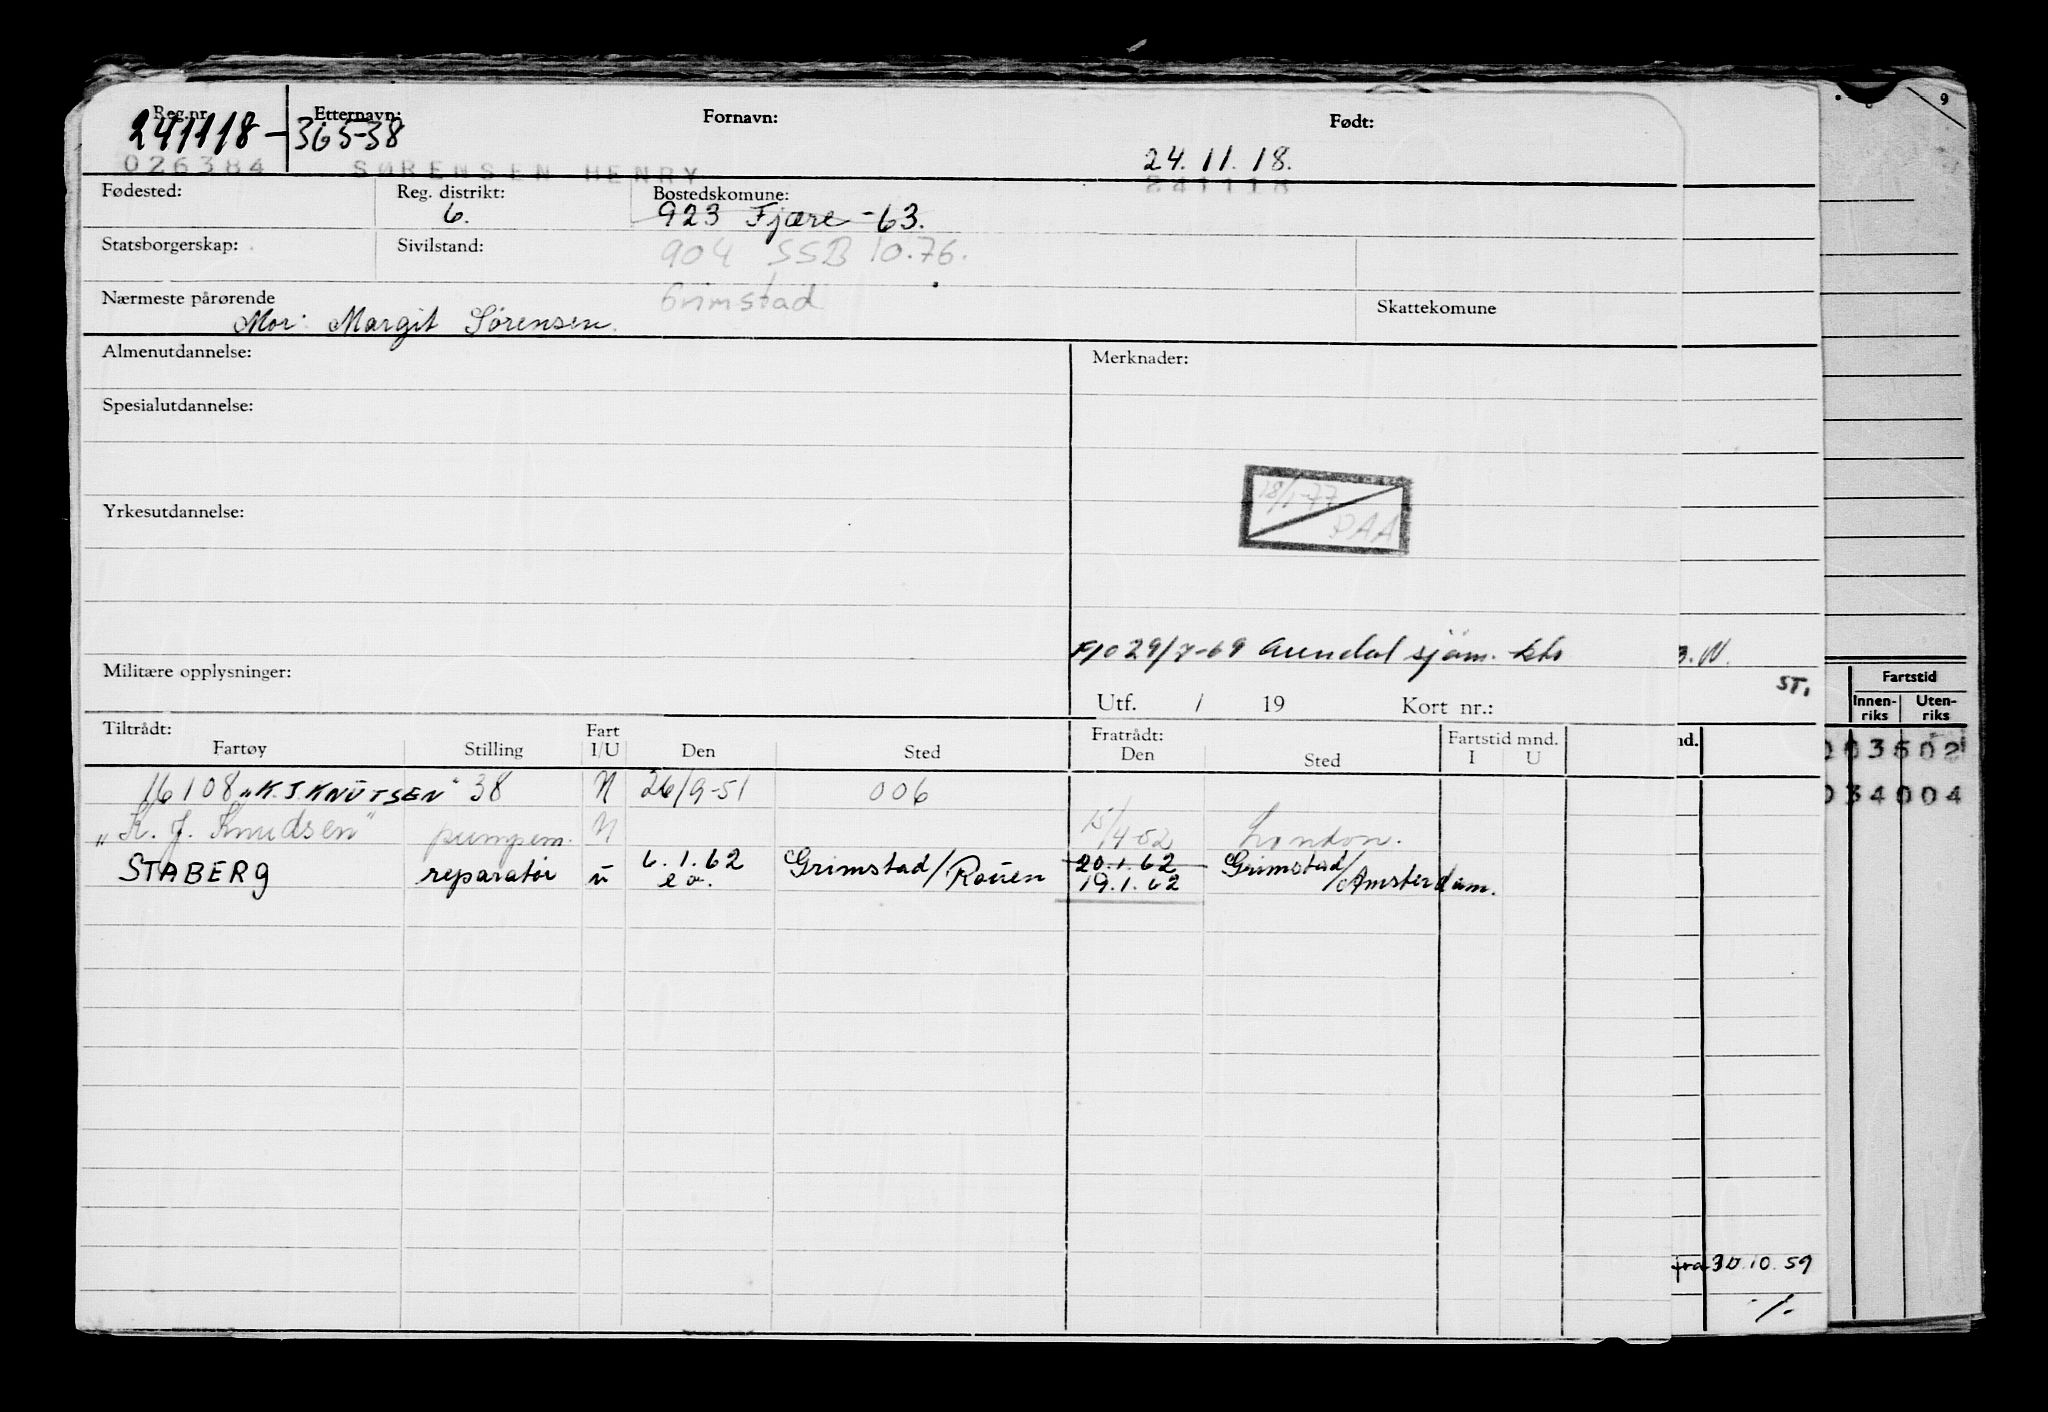 Reg.nr. Etternavn: Fornavn: Født:
241118-36538 24.11.18.
026384 SØRENSEN HENRY 241118
Fødested: Reg. distrikt: Bostedskomune:
6. 923 Fjære -63.
Statsborgerskap: Sivilstand: 904 SSB 10.76.
Nærmeste pårørende Grimstad Skattekomune
Mor: Margit Sørensen.
Almenutdannelse: Merknader:
Spesialutdannelse:
18/1-77
PAA
Yrkesutdannelse:
29/7-69 Arendal sjøm. kto
Militære opplysninger:
ST.
Utf. / 19 Kort nr.:
Fartstid
Innenriks Utenriks
Tiltrådt: Fart Fratrådt: Fartstid mnd.
Fartøy Stilling I/U Den Sted Den Sted I U nd.
003502
16108 „K.J.KNUTSEN" 38 N 26/9-51 006
034004
„K. J. Knudsen" pumpem. N 15/4-52 London.
STABERG reparatør u 6.1.62 Grimstad/Rouen 20.1.62 Grimstad/Amsterdam.
e o. 19.1.62
fra 30.10.59
9